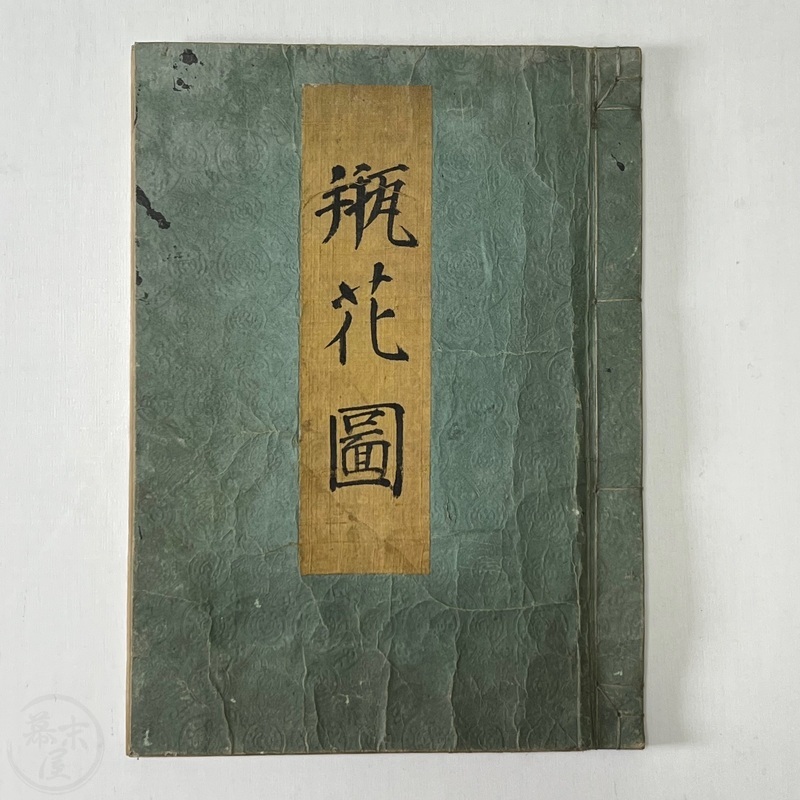 瓶花圖
幕末屋